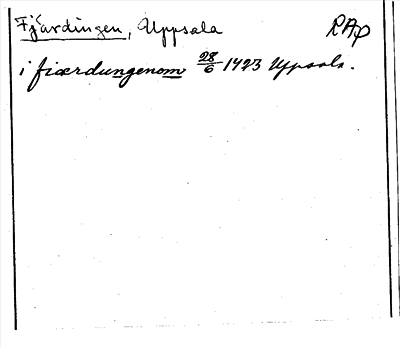 Fjärdingen, Uppsala RAp
i fiærdungenom 28/6 1423 Upsala.